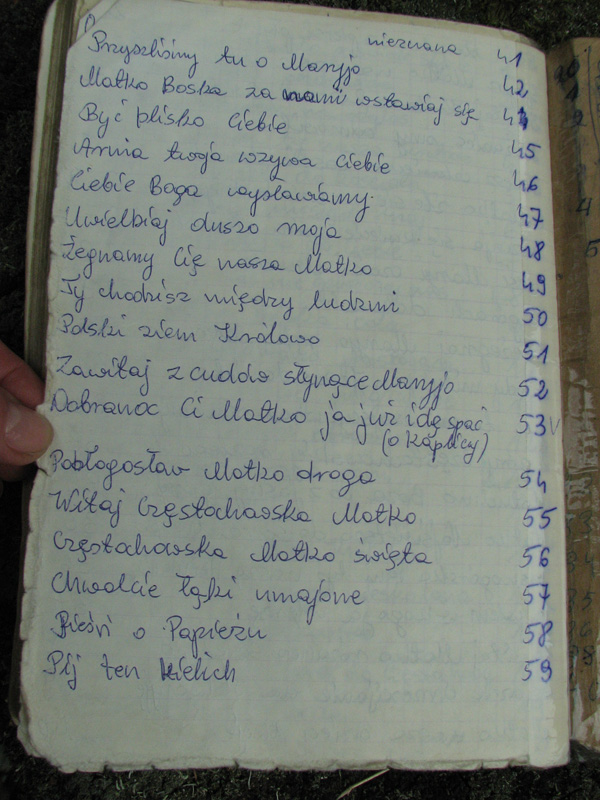 nieznana 41
Przyszliśmy tu o Maryjo 42
Matko Boska za nami wstawiaj się
Być blisko Ciebie 45
Armia twoja wzywa Ciebie 46
Ciebie Boga wysławiamy 47
Uwielbiaj duszo moja 48
Żegnamy Cię nasza Matko 49
Ty chodzisz między ludzmi 50
Polski ziem Królowo 51
Zawitaj z cudów słynące Maryjo 52
Dobranoc Ci Matko ja już idę spać 53
(o kaplicy)
Pobłogosław Matko droga 54
Witaj Częstochowska Matko 55
Częstochowska Matko święta 56
Chwalcie łąki umajone 57
Pieśń o Papieżu 58
Pij ten kielich 59